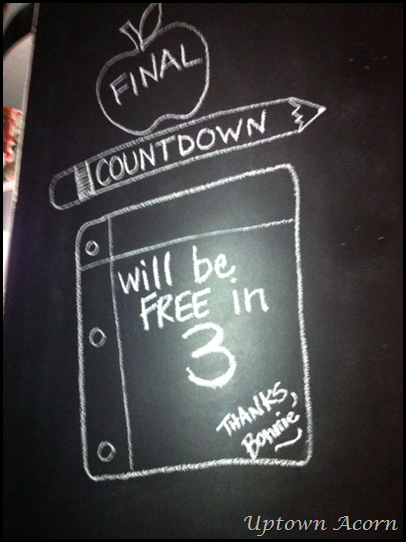 FINAL
COUNTDOWN
will be
FREE in
3
THANKS,
Bonnie
Uptown Acorn